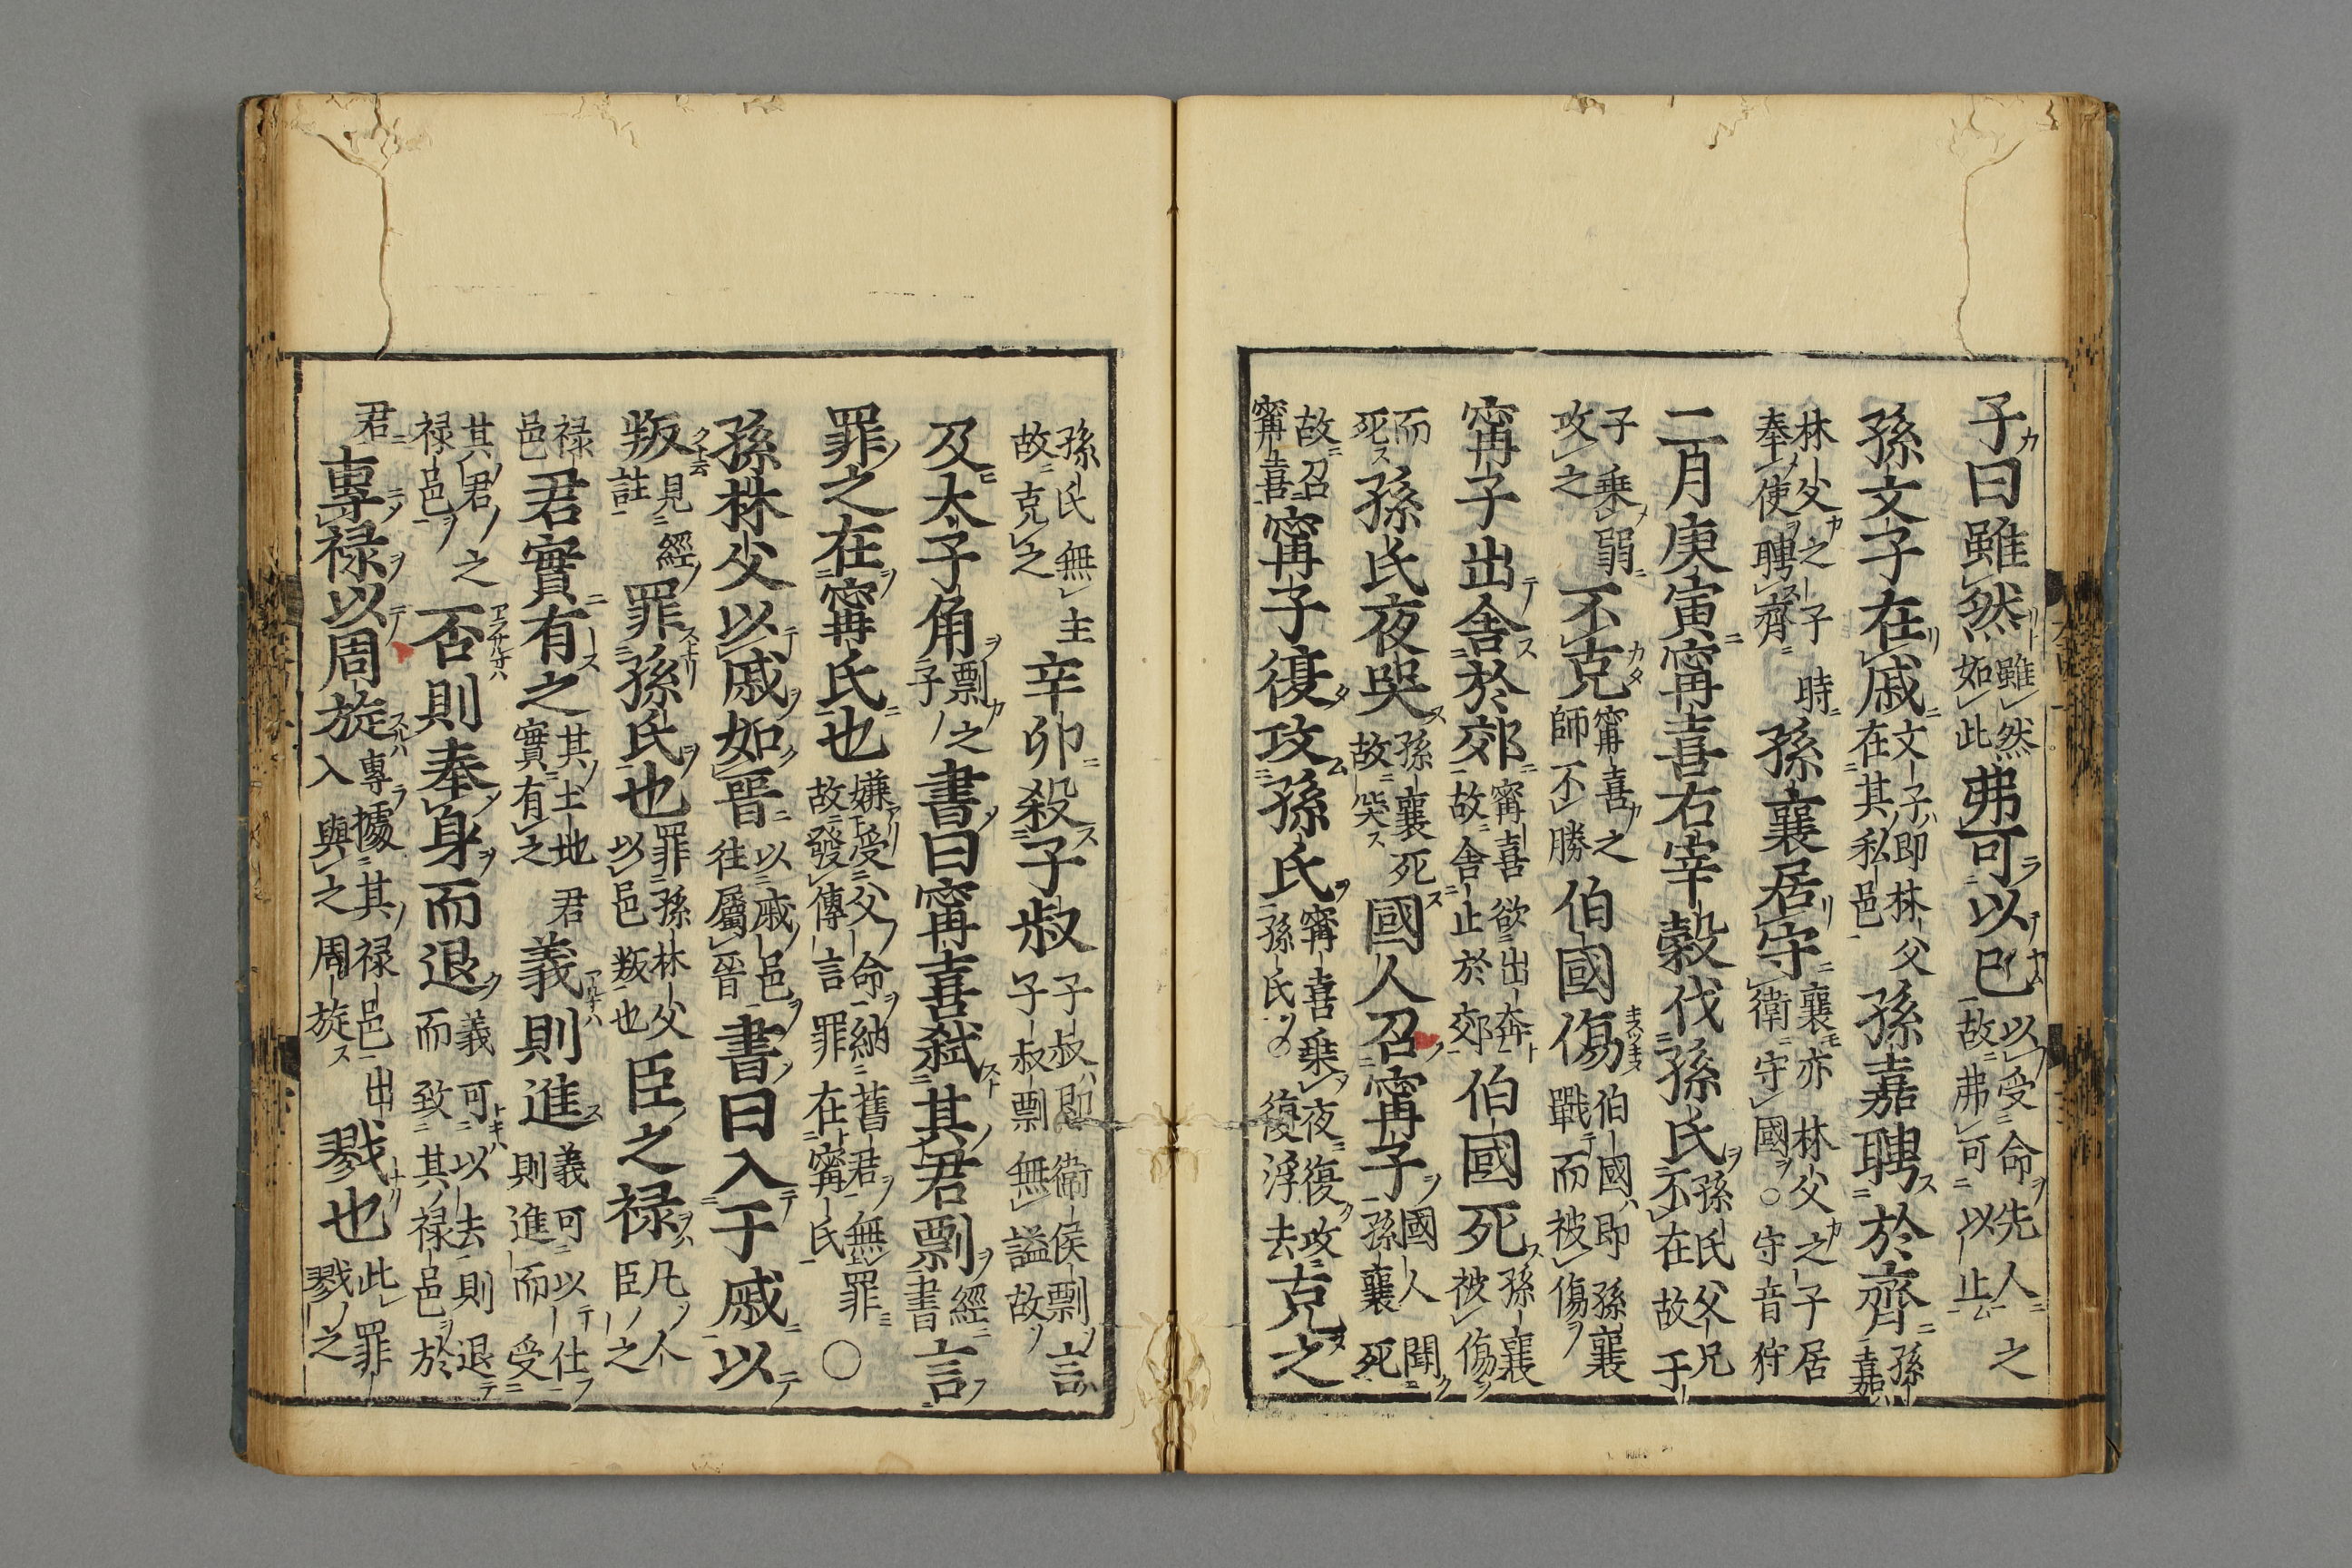 子曰雖然雖然如此弗可以已以受命先人之故弗可以止
孫文子在戚文子即林父在其私邑孫嘉聘於齊孫嘉
林父之子奉使聘齊時孫襄居守襄亦林父之子居衛守國○守音狩
二月庚寅甯喜右宰穀伐孫氏不孫氏父兄在故于
子乗弱攻之不克甯喜之師不勝伯國傷伯國即孫襄戰而被傷
甯子出舍於郊甯喜欲出奔故舍止於郊伯國死孫襄被傷
而死孫氏夜哭孫襄死故哭國人召甯子國人聞孫襄死
故召甯喜甯子復攻孫氏甯喜乗夜復攻孫氏○復浮去克之
孫氏無主故克之辛卯殺子叔子叔即衞侯剽言子叔剽無謚故
及太子角剽之子書曰甯喜弑其君剽經書言
罪之在甯氏也嫌受父命納舊君無罪故發傳言罪在甯氏○
孫林父以戚如晉以戚邑往屬晉書曰入于戚以
叛見經註罪孫氏也罪孫林父以邑叛也臣之禄凡人臣之
禄邑君實有之其土地實有之君義則進義可以仕則進而受
其君之禄邑否則奉身而退義可以去則退而致其禄邑於
君專禄以周旋專據其禄邑出入與之周旋戮也此罪戮之